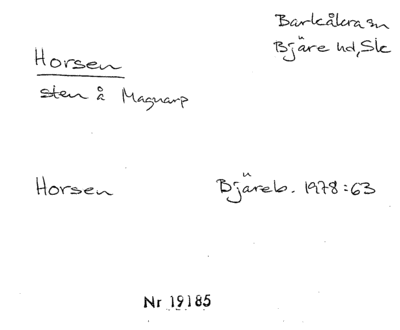 Barkåkra sn
Bjäre hd, Sk
Horsen
sten å Magnarp
Horsen Bjäreb. 1978:63
Nr 19185